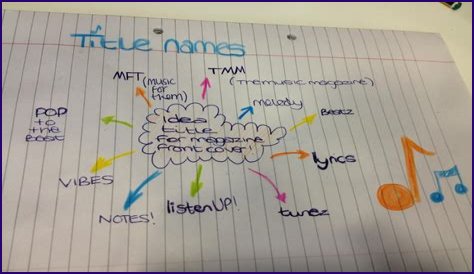 Title names
MFT (music
for
them)
TMM
(The music magazine)
melody
Beatz
lyrics
tunez
listenUP!
NOTES!
VIBES
POP
to
the
Beat
Idea
title
for magazine
front cover!